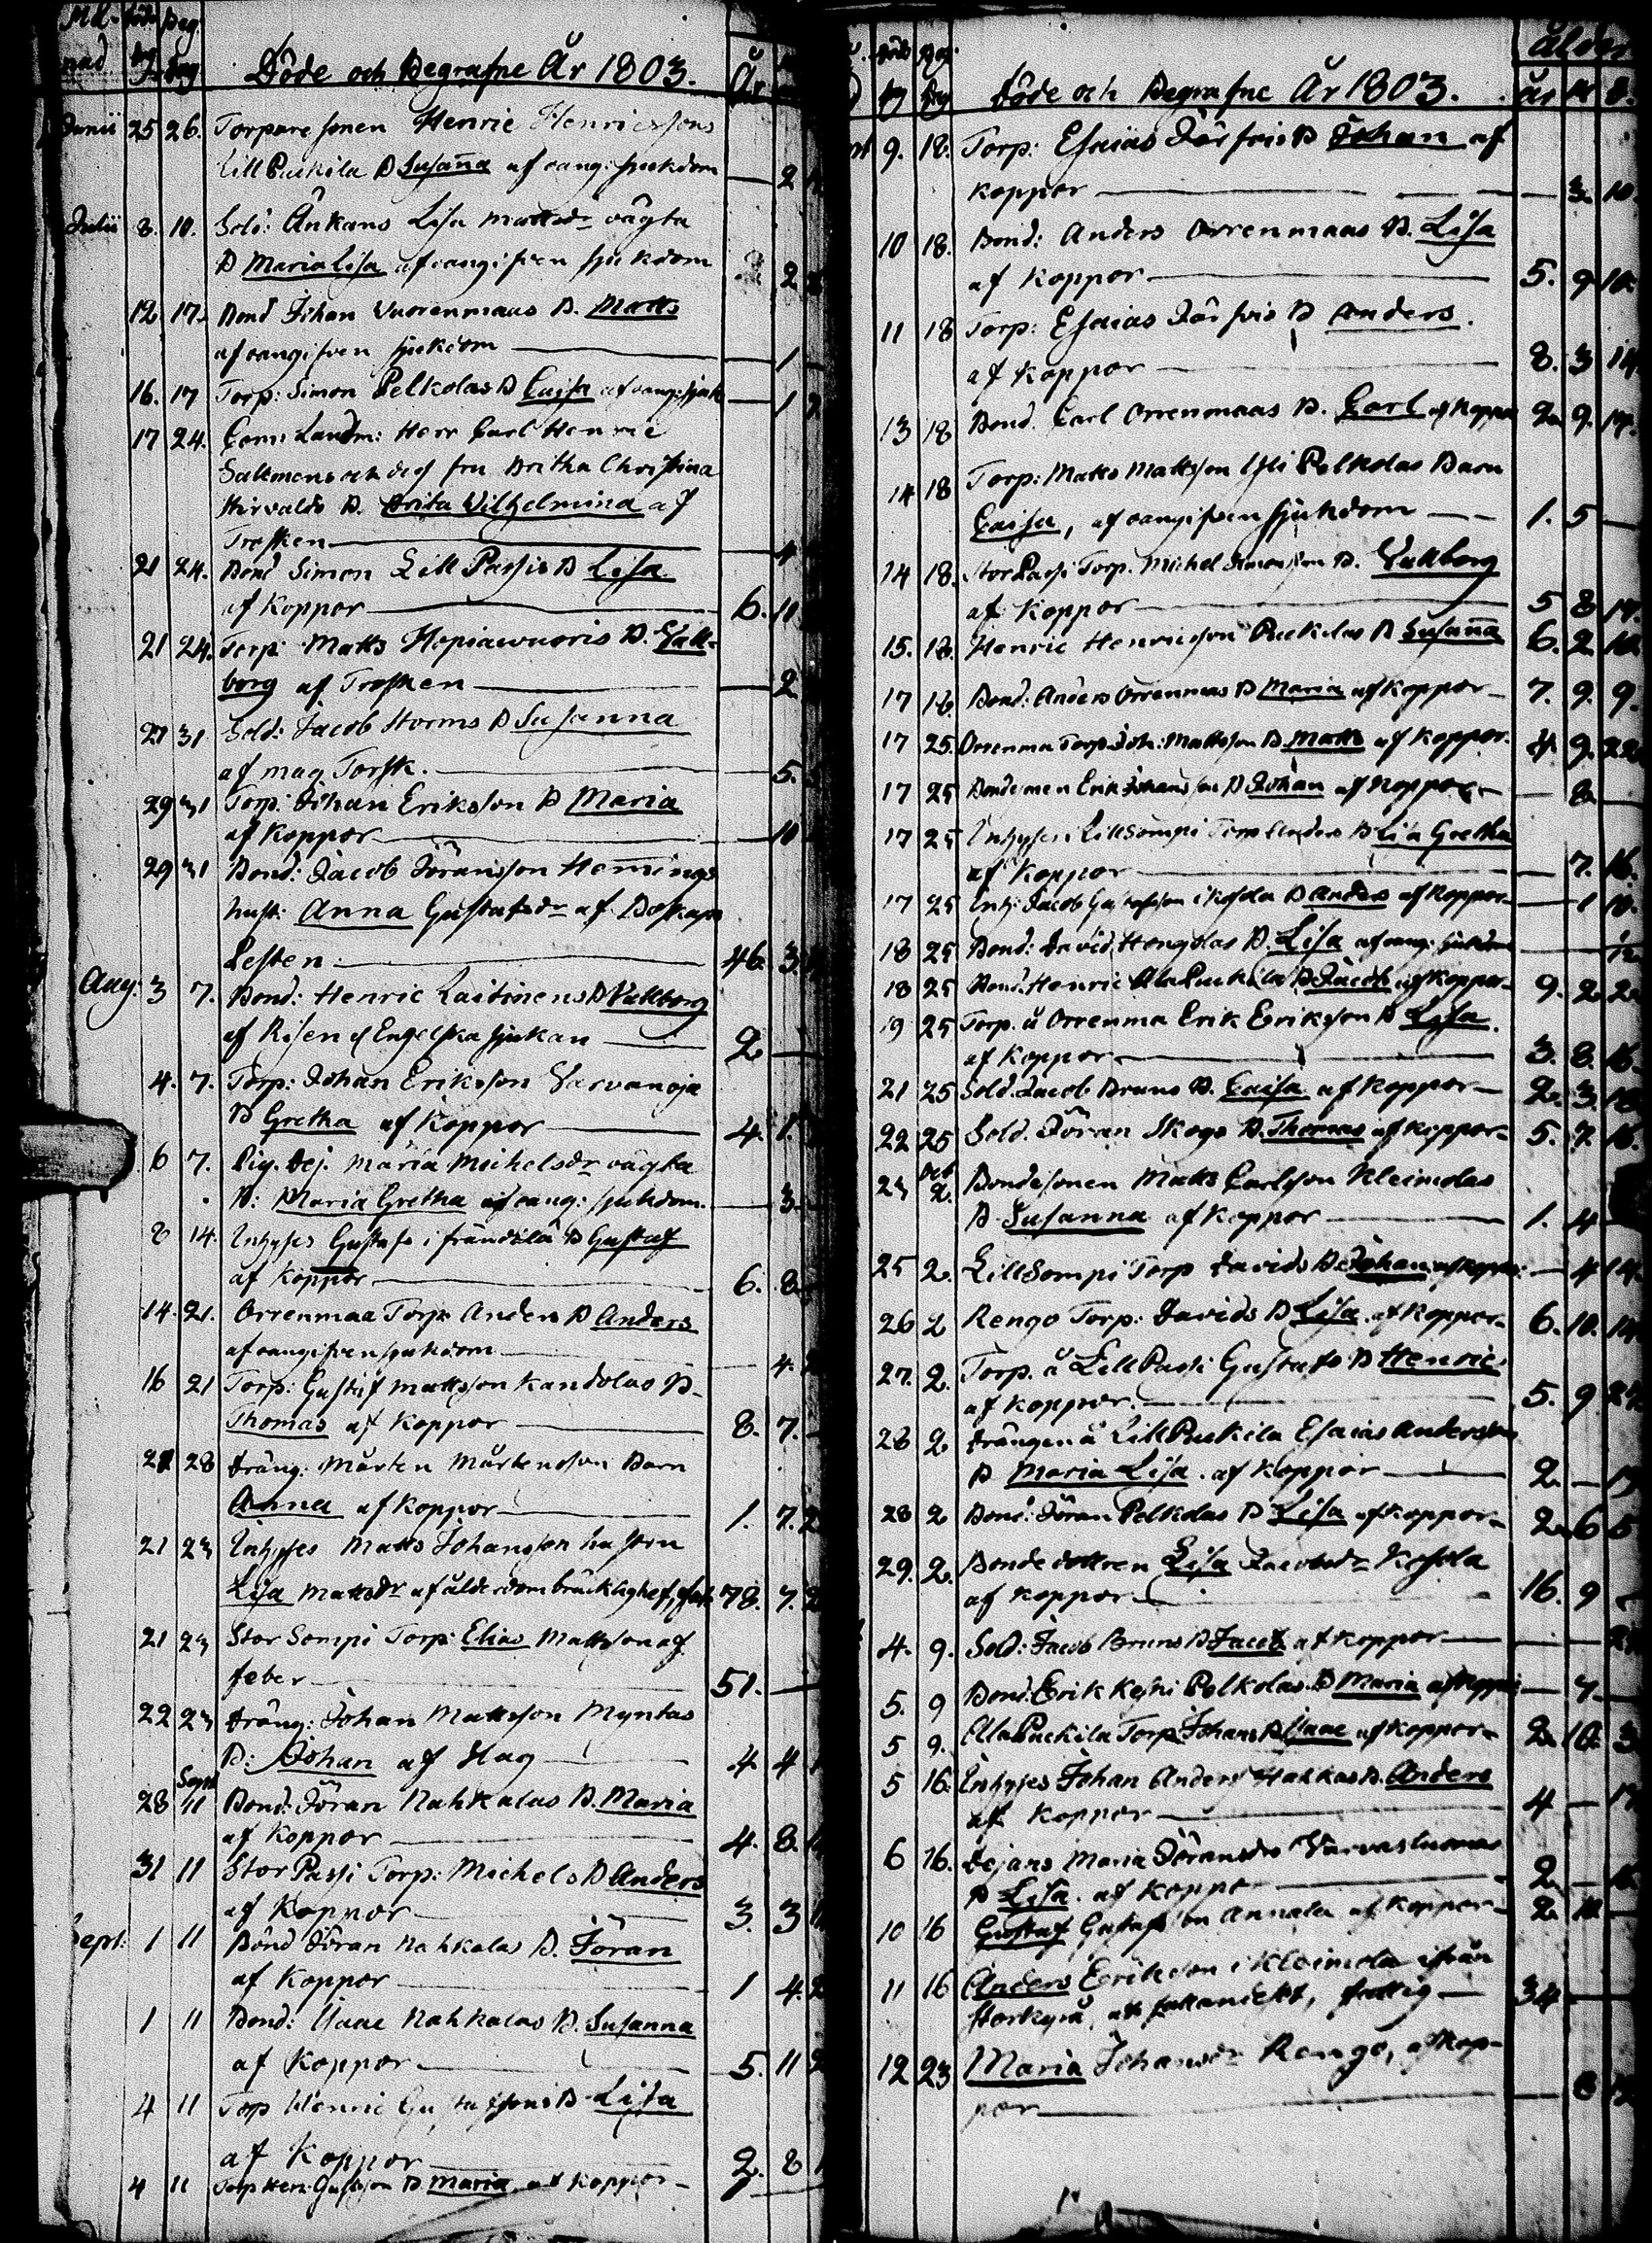 Må- död Beg.
nad dag dag Döde och Begrafne År 1803. År
Junii 25 26. Torpare sonen Henric Henricssons
Lill Puckila B Susanna af oang: sjukdom — 2
Julii 8. 10. Sold: Änkans Lisa Mattsdr oägta
B Maria Lisa af oangifven sjukdom 2
12. 17. Bond Johan Vuorenmaas B. Matts
af oangifven sjukdom — 1
16. 17 Torp: Simon Pelkolas B Caisa af oang: sjuk — 1
17 24. Com: Landm: Herr Carl Henric
Sallmens och dess fru Britha Christina
Hirvalds B. Brita Wilhelmina af
Trosken — 4
21 24. Bond Simon Lill Passis B Lisa
af Koppor 6. 10
21 24. Torp: Matts Hopiawuoris B. Vall-
borg af Trosken — 2
27 31 Sold: Jacob Storms B Susanna
af mag Torsk. — 5.
29 31 Torp: Johan Eriksson B Maria
af Koppor — 10
29 31 Bond: Jacob Jöransson Hemmings
hust: Anna Gustafsdr af Boskaps
Lesten 46. 3.
Aug. 3 7. Bond: Henric Laitinens B Vallborg
af Risen el Engelska sjukan 2 —
4. 7. Torp: Johan Eriksson Varvanoja
B Gretha af Koppor 4. 1.
6 7. Pig. Dej. Maria Michelsdr oägta
B: Maria Gretha af oang: sjukdom. — 3.
8 14. Inhyses Gustafs i frändilä B Gustaf
af Koppor 6. 8
14. 21. Orrenmaa Torp Anders B Anders
af oangifven sjukdom — 4.
16 21 Torp: Gustaf Mattsson Kandolas B.
Thomas af Koppor 8. 7.
21 28 Dräng: Mårten Mårtensson Barn
Anna af Koppor 1. 7. 2
21 23 Inhyses Matts Johansson hustru
Lisa Mattsdr af ålderdom bräcklighet, 78. 7. 2
21 23 Stor Sompi Torp: Elias Mattsson af
feber 51. —
22 23 Dräng: Johan Mattsson Myntas
B: Johan af Slag 4 4
28 Sept 11 Bond: Jöran Nahkalas B. Maria
af Koppor 4. 8.
31 11 Stor Passi Torp: Michels B Anders
af Koppor 3. 3
Sept: 1 11 Bond Jöran Nahkalas B. Jöran
af Koppor 1 4. 2
1 11 Bond: Isaac Nahkalas B. Susanna
af Koppor 5. 11 2
4 11 Torp Henric Gustafssons B Lisa
af Koppor 2. 8
4 11 Torp Henr: Gustsson B. Maria af Koppor
död Beg. ålder
dag dag Döde och Begrafne År 1803. år M D.
9. 18. Torp: Esaias Järfvis B Johan af
Koppor — 3. 10.
10 18. Bond: Anders Orrenmaas B. Lisa
af Koppor 5. 9. 10.
11 18 Torp: Esaias Järfvis B Anders.
af Koppor 8. 3 14.
13 18 Bond. Carl Orrenmaas B. Carl af Koppor 2. 9. 14.
14 18 Torp: Matts Mattsson Ylli Pelkolas Barn
Caisa, af oangifven sjukdom 1. 5 —
14 18. Stor Passi Torp. Michel Simonsson B. Vallborg
af Koppor 5 8 14.
15. 18. Henric Henricsson Puckilas B Susanna 6. 2 10
17 18. Bond: Anders Orrenmaas B Maria af Koppor 7. 9. 9.
17 25. Orrenma Torp Joh: Mattsson B Matts af Koppor. 4. 9. 22
17 25 Bondemen Erik Johansson B Johan af Koppor — 8 —
17 25 Inhyses Lill Sompi Torp Anders B Lisa Gretha
af Koppor — 7. 16.
17 25 Inh: Jacob Gustafsson i Kosola B Anders af Koppor — 1 10.
18 25 Bond: David Hengolas B. Lisa af oang: sjukdom — — 12
18 25 Bond: Henric Ala Puckila B Jacob af Koppor 9. 2 2
19 25 Torp. å Orrenma Erik Eriksson B Lisa.
af Koppor 3. 8. 16.
21 25 Sold. Jacob Bruns B. Caisa af Koppor 2. 3. 18
22 25 Sold. Jöran Skogs B. Thomas af Koppor 5. 7. 16.
23 Octb 2. Bondesonen Matts Carlsson Kleimolas
B Susanna af Koppor 1. 4
25 2. Lill Sompi Torp Davids B Johan af Koppor — 4 14.
26 2 Rengo Torp: Davids B Lisa. af Koppor 6. 10. 14
27. 2. Torp. å Lill Passi Gustafs B Henric
af Koppor. 5. 9 27.
28 2 Drängen å Lill Puckila Esaias Andersson
B Maria Lisa. af Koppor 2 — 19
28 2 Bond: Jöran Pelkolas B Lisa af Koppor 2 6 5
29. 2. Bonde dottren Lisa Jacobsdr Kosola
af Koppor 16. 9 —
4. 9. Sold: Jacob Bruns B Jacob af Koppor — —
5. 9 Bond: Erik Keski Pelkolas B Maria af Koppor — 7. —
5 9. Ala Puckila Torp Johans B Isaac af Koppor 2. 10 3
5 16. Inhyses Johan Anders Hakkas B. Anders
af Koppor 4 —
6 16. Dejans Maria Jöransdr Varvasluomas
B Lisa. af Koppor 2 —
10 16 Gustaf Gustafsson Annala af Koppor 2.
11 16 Anders Eriksson i Kleimola ifrån
Storkyrå, fattig 34 —
12 23 Maria Johansdr Rengo, af Kop-
por — 8